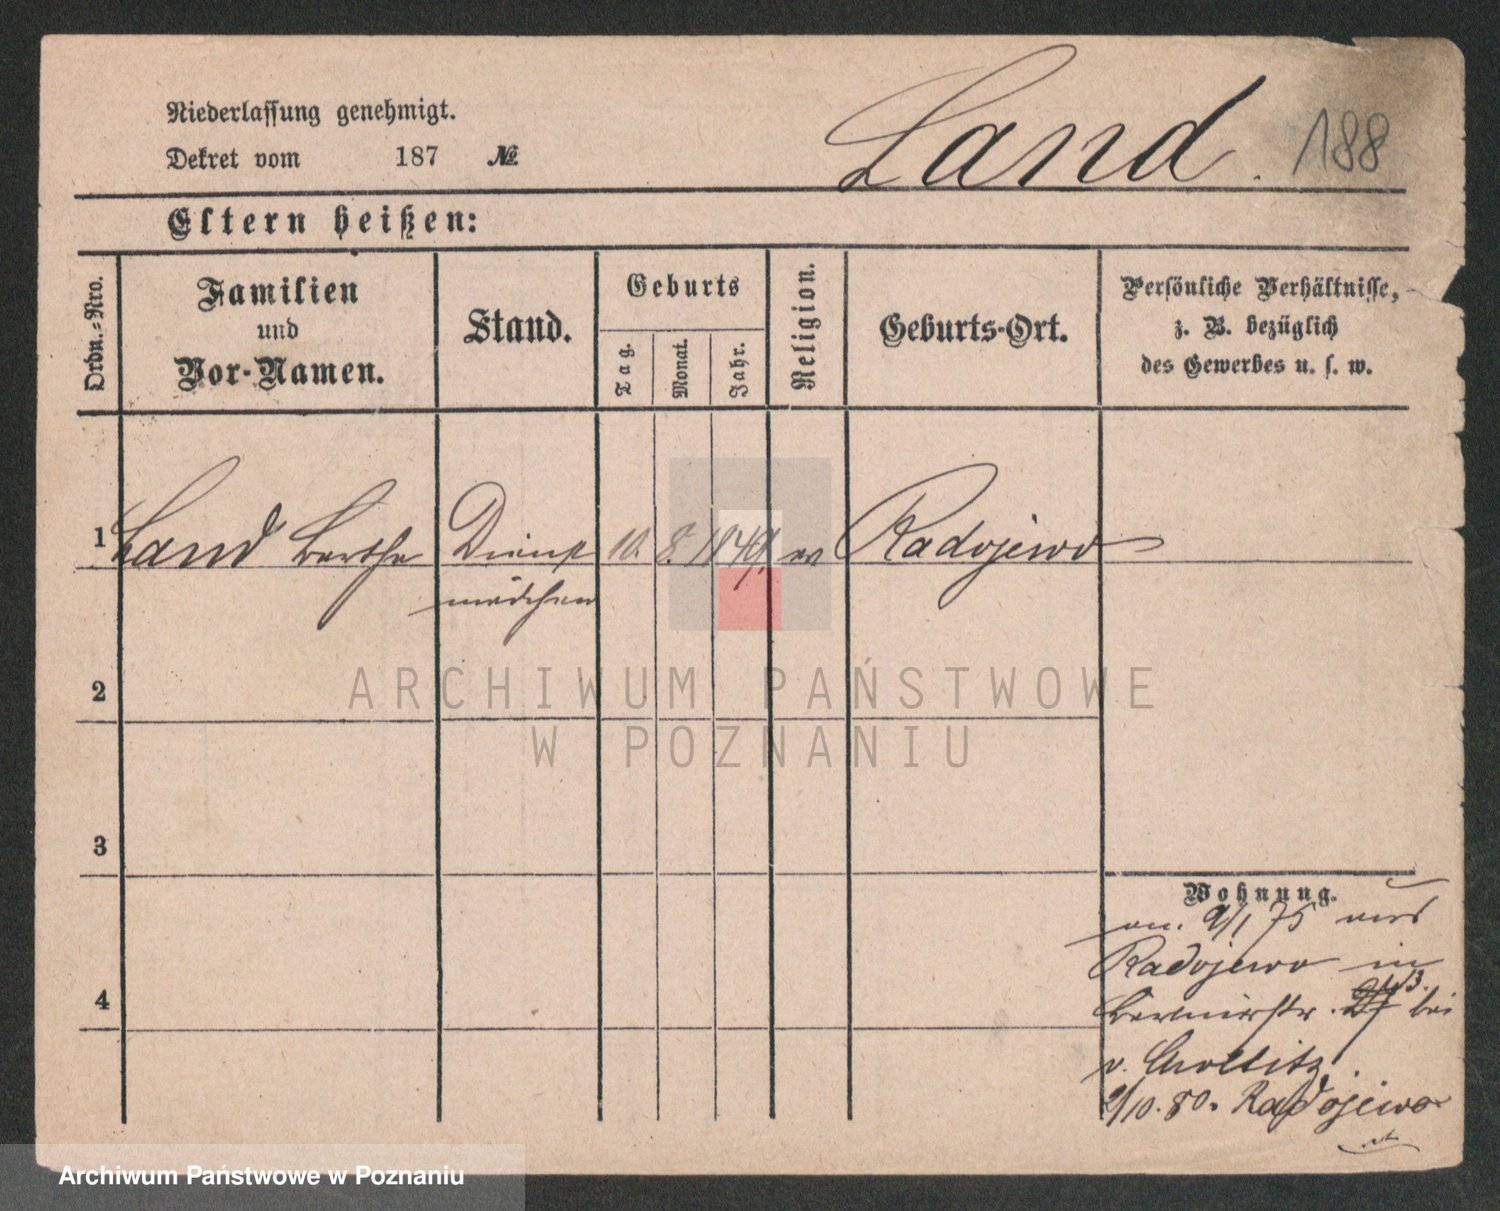 Niederlassung genehmigt.
Dekret vom 187 №
Land. 188
Eltern heißen:
Ordn.-Nro.
Familien
und
Vor-Namen.
Stand.
Geburts
Tag.
Monat.
Jahr.
Religion.
Geburts-Ort.
Persönliche Verhältnisse,
z. B. bezüglich
des Gewerbes u. s. w.
1 Land Bertha Dienst 10. 8. 1849. ev Radojewo
mädchen
2
3
4
Wohnung.
an. 9/1 75 aus
Radojewo in
bei
v.
9/10. 80. Radojewo
ARCHIWUM PAŃSTWOWE
W POZNANIU
Archiwum Państwowe w Poznaniu